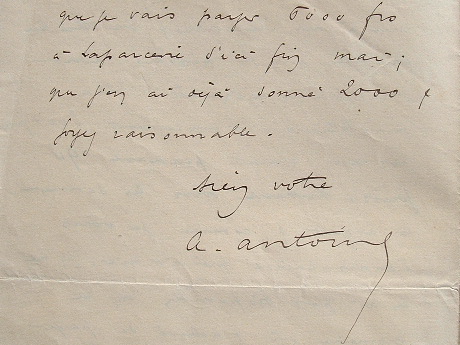 que je vais payer 6000 frs
à Laparcerie d'ici fin mai ;
que j'en ai déjà donné 2000 &
soyez raisonnable.
bien votre
a. antoine